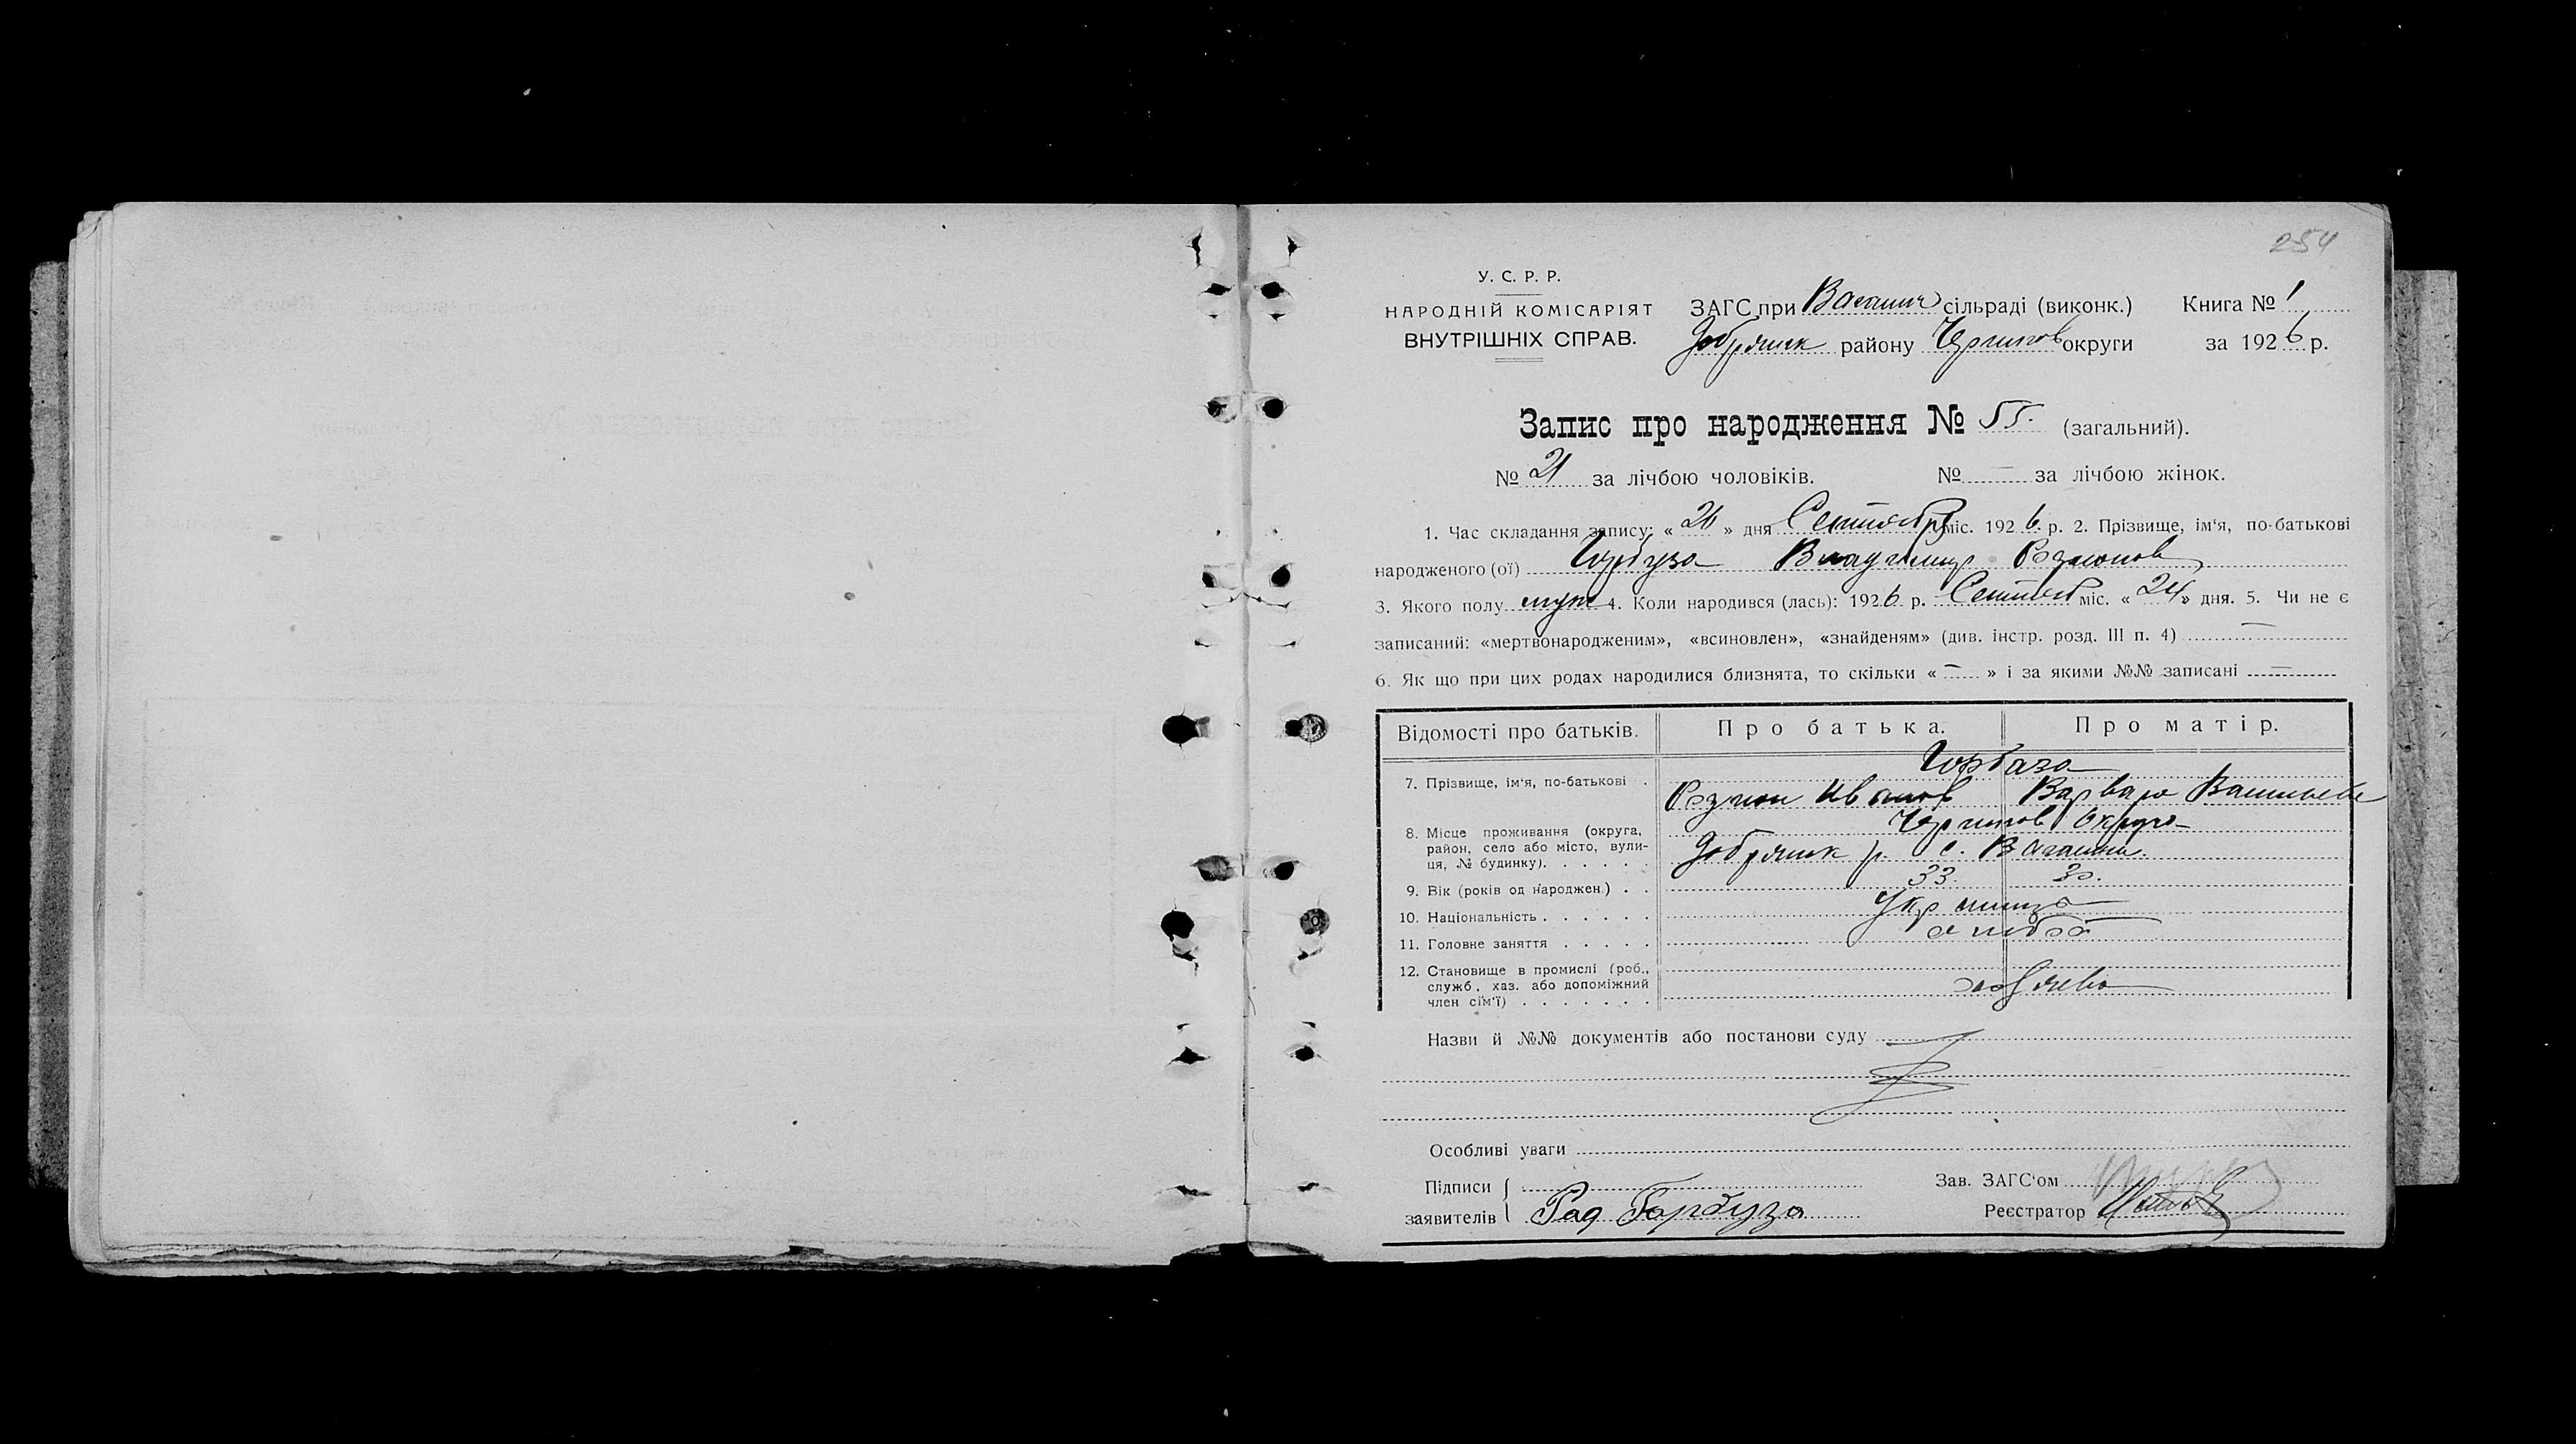 254
У. С. Р. Р.
НАРОДНІЙ КОМІСАРІЯТ
ВНУТРІШНІХ СПРАВ.
ЗАГС при сільраді (виконк.) Книга № 1
Добрянск району Чернигов округи за 1926 р.
Запис про народження № 55. (загальний).
№ 21 за лічбою чоловіків. № — за лічбою жінок.
1. Час складання запису: « 26 » дня Сентября міс. 1926 р. 2. Прізвище, ім'я, по-батькові
народженого (ої) Гарбуза Владимир
3. Якого полу муж 4. Коли народився (лась): 1926 р. Сентяб міс. « 24 » дня. 5. Чи не є
записаний: «мертвонародженим», «всиновлен», «знайденям» (див. інстр. розд. III п. 4) —
6. Як що при цих родах народилися близнята, то скільки « — » і за якими №№ записані —
Відомості про батьків. Про батька. Про матір.
7. Прізвище, ім'я, по-батькові
Иванов Варвара
8. Місце проживання (округа, район, село або місто, вулиця, № будинку).
Чернигов Округа
Добрянск р. с.
9. Вік (років од народжен.) 33. 30.
10. Національність
11. Головне заняття
12. Становище в промислі (роб., служб, хаз. або допоміжний член сім'ї)
Назви й №№ документів або постанови суду
Особливі уваги
Підписи Зав. ЗАГС'ом
заявителів Рад Гарбуза Реєстратор